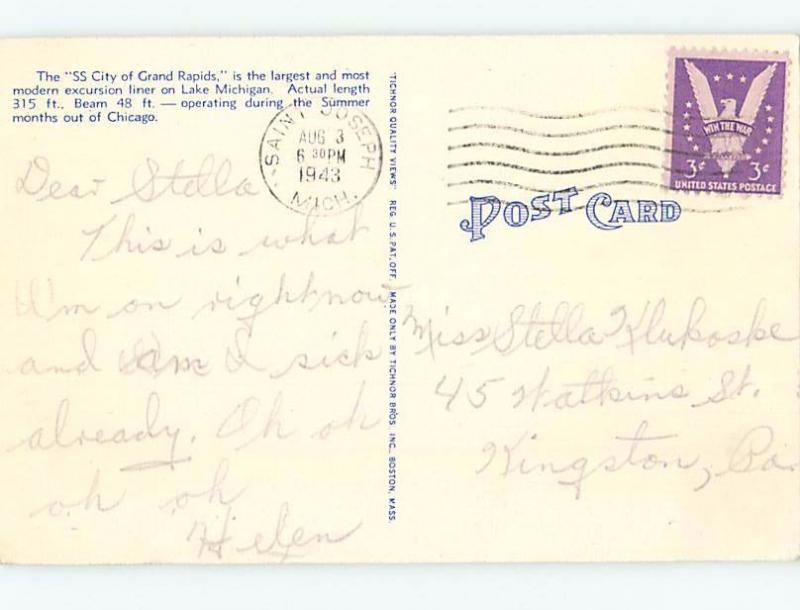 The "SS City of Grand Rapids," is the largest and most
modern excursion liner on Lake Michigan. Actual length
315 ft., Beam 48 ft. — operating during the Summer
months out of Chicago.
SAINT JOSEPH
AUG 3
6 30PM
1943
MICH.
Dear Stella
This is what
I'm on right now
and am I sick
already. Oh oh
oh oh
Helen
"TICHNOR QUALITY VIEWS" REG. U.S. PAT. OFF. MADE ONLY BY TICHNOR BROS. INC., BOSTON, MASS.
WIN THE WAR
3¢ 3¢
UNITED STATES POSTAGE
POST CARD
Miss Stella Klukoske
45 Watkins St.
Kingston, Pa.